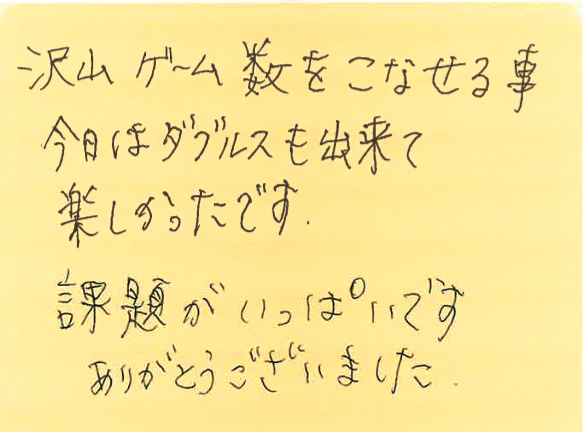 沢山 ゲーム数をこなせる事
今日はダブルスも出来て
楽しかったです.
課題がいっぱいです
ありがとうございました.